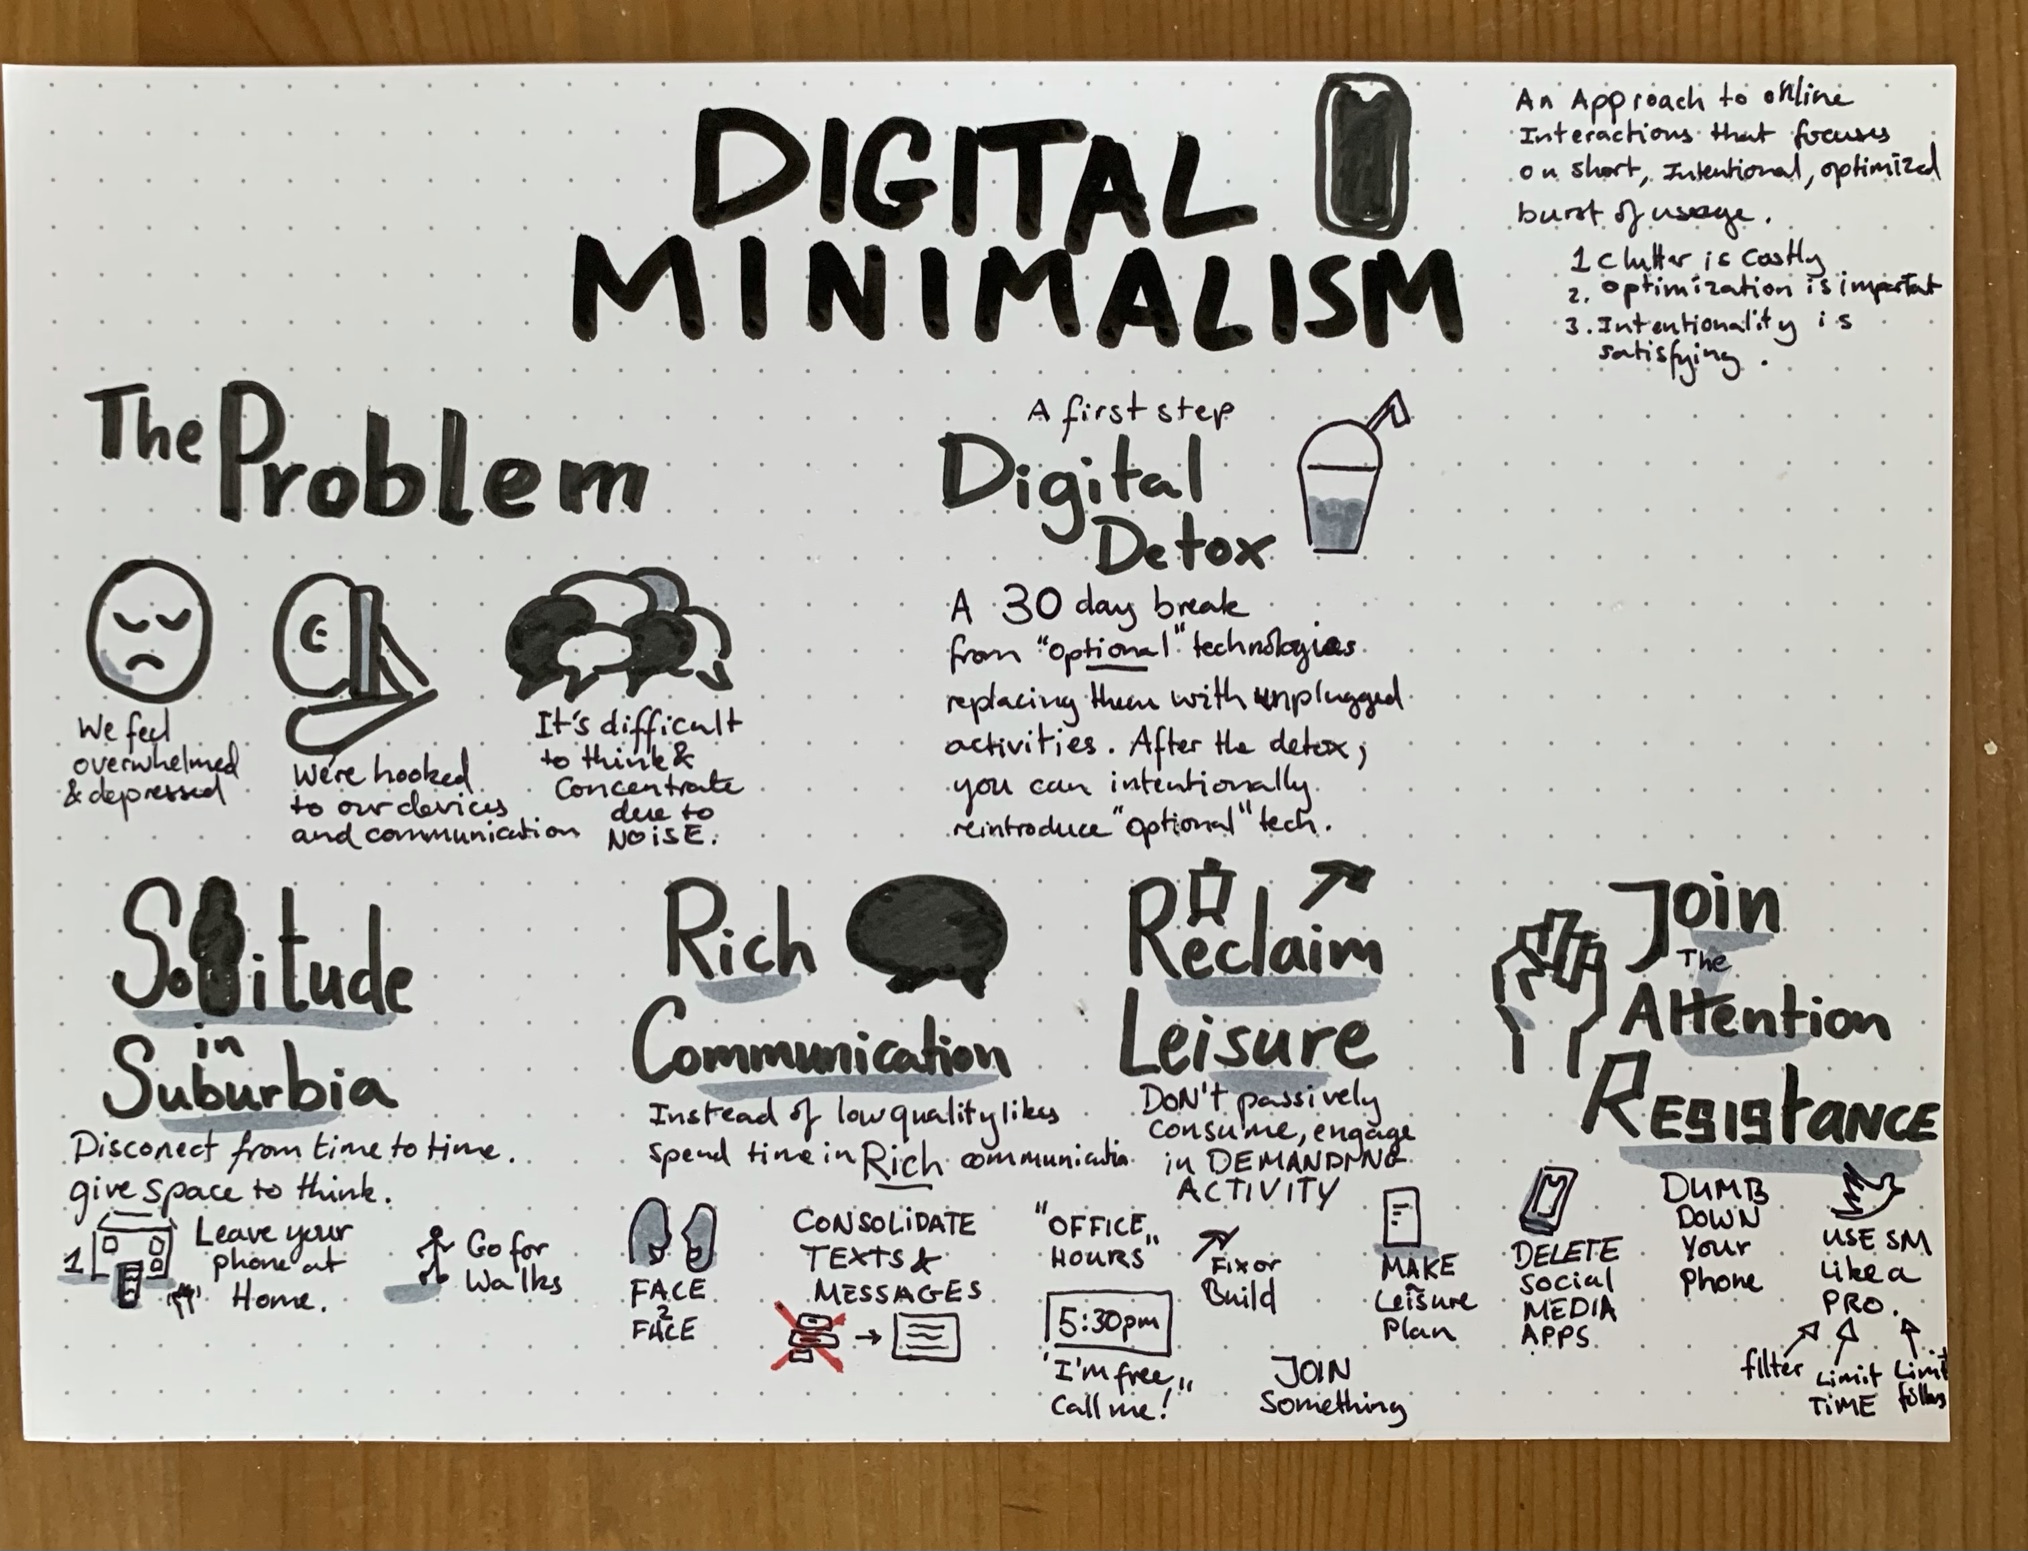 DIGITAL
MINIMALISM
An Approach to online
Interactions that focuses
on short, Intentional, optimized
burst of usage.
1 clutter is Costly
2. Optimization is important
3. Intentionality is
satisfying.
The Problem
We feel
overwhelmed
& depressed
We're hooked
to our devices
and communication
It's difficult
to think &
Concentrate
due to
NOiSE.
A first step
Digital
Detox
A 30 day break
from "optional" technologies
replacing them with unplugged
activities. After the detox,
you can intentionally
reintroduce "optional" tech.
Solitude
in
Suburbia
Disconect from time to time.
give space to think.
1
Leave your
phone at
Home.
Go for
Walks
Rich
Communication
Instead of low quality likes
spend time in Rich communication
FACE
2
FACE
CONSOLIDATE
TEXTS &
MESSAGES
"OFFICE
HOURS"
5:30pm
"I'm free,
Call me!"
Reclaim
Leisure
DoN't passively
consume, engage
in DEMANDING
ACTIVITY
Fix or
Build
MAKE
a
Leisure
Plan
JOIN
Something
Join
The
Attention
RESISTANCE
DELETE
Social
MEDIA
APPS
DUMB
DOWN
Your
Phone
USE SM
Like a
PRO.
filter
Limit
TIME
Limit